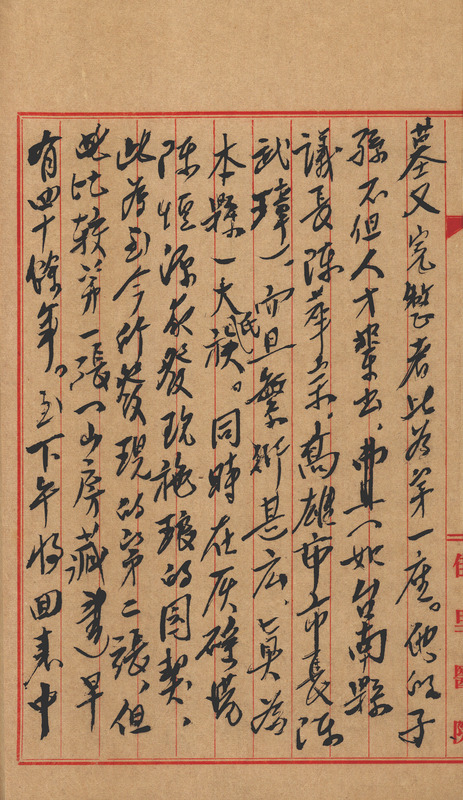 墓又完整者此為第一座。他的子
孫不但人才輩出，典（如台南縣
議長陳華宗，高雄市市長陳
武璋），而且繁衍甚広，真為
本縣一大氏族。同時在灰磘崗
陳恒源家發現施琅的図契，
此為到今所發現的第二張，但
此比較第一張（山房藏）還早
有四十餘年。至下午將回來中
佳里醫院